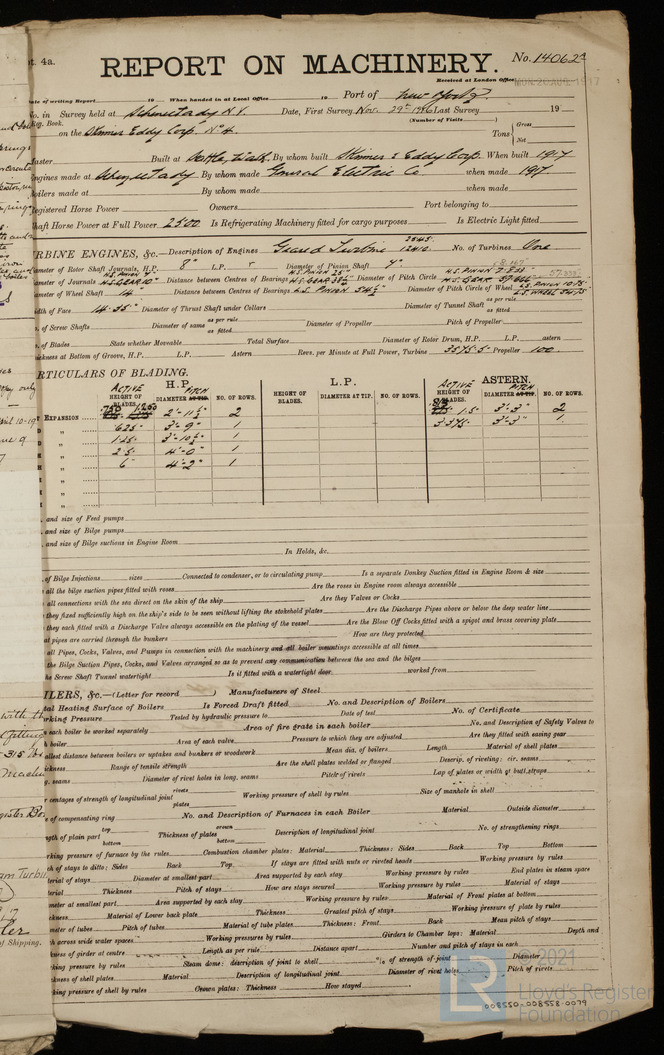 pt. 4a.
REPORT ON MACHINERY. No. 14062a
Received at London Office MON. 20 AUG. 1917
Date of writing Report 19 When handed in at Local Office 19 Port of New York.
No. in Survey held at Schenectady N.Y. Date, First Survey Nov. 29th 1916 Last Survey 19
Reg. Book. (Number of Visits )
on the Skinner Eddy Corp. No 4. Tons Gross Net
Master Built at Seattle, Wash. By whom built Skinner & Eddy Corp. When built 1917
Engines made at Schenectady By whom made General Electric Co when made 1917.
Boilers made at By whom made when made
Registered Horse Power Owners Port belonging to
Shaft Horse Power at Full Power 2500 Is Refrigerating Machinery fitted for cargo purposes Is Electric Light fitted
TURBINE ENGINES, &c.—Description of Engines Geared Turbine No. of Turbines One
Diameter of Rotor Shaft Journals, H.P. 8" L.P. Diameter of Pinion Shaft 4"
Diameter of Journals H.S. PINION 4" H.S. GEAR 10" Distance between Centres of Bearings H.S. PINION 25" Diameter of Pitch Circle
Diameter of Wheel Shaft 14" Distance between Centres of Bearings Diameter of Pitch Circle of Wheel
Width of Face Diameter of Thrust Shaft under Collars Diameter of Tunnel Shaft as per rule as fitted
No. of Screw Shafts Diameter of same as per rule as fitted Diameter of Propeller Pitch of Propeller
No. of Blades State whether Moveable Total Surface Diameter of Rotor Drum, H.P. L.P. astern
Thickness at Bottom of Groove, H.P. L.P. Astern Revs. per Minute at Full Power, Turbine Propeller 100
PARTICULARS OF BLADING.
H.P. L.P. ASTERN.
ACTIVE HEIGHT OF BLADES. PITCH DIAMETER AT TIP. NO. OF ROWS. HEIGHT OF BLADES. DIAMETER AT TIP. NO. OF ROWS. ACTIVE HEIGHT OF BLADES. PITCH DIAMETER AT TIP. NO. OF ROWS.
EXPANSION .750 1.250 2'-11½" 2 1.5" 3'-3" 2
" .625" 3'-9" 1 3.375" 3'-3" 1
" 1.25" 3'-10½" 1
" 2.5" 4'-0" 1
" 6" 4'-2" 1
"
"
"
and size of Feed pumps
and size of Bilge pumps
and size of Bilge suctions in Engine Room
In Holds, &c.
of Bilge Injections sizes Connected to condenser, or to circulating pump Is a separate Donkey Suction fitted in Engine Room & size
all the bilge suction pipes fitted with roses Are the roses in Engine room always accessible
all connections with the sea direct on the skin of the ship Are they Valves or Cocks
they fixed sufficiently high on the ship's side to be seen without lifting the stokehold plates Are the Discharge Pipes above or below the deep water line
they each fitted with a Discharge Valve always accessible on the plating of the vessel Are the Blow Off Cocks fitted with a spigot and brass covering plate
at pipes are carried through the bunkers How are they protected
all Pipes, Cocks, Valves, and Pumps in connection with the machinery and all boiler mountings accessible at all times
the Bilge Suction Pipes, Cocks, and Valves arranged so as to prevent any communication between the sea and the bilges
the Screw Shaft Tunnel watertight Is it fitted with a watertight door worked from
BOILERS, &c.—(Letter for record ) Manufacturers of Steel
Total Heating Surface of Boilers Is Forced Draft fitted No. and Description of Boilers
Working Pressure Tested by hydraulic pressure to Date of test No. of Certificate
each boiler be worked separately Area of fire grate in each boiler No. and Description of Safety Valves to
boiler Area of each valve Pressure to which they are adjusted Are they fitted with easing gear
smallest distance between boilers or uptakes and bunkers or woodwork Mean dia. of boilers Length Material of shell plates
Thickness Range of tensile strength Are the shell plates welded or flanged Descrip. of riveting: cir. seams
long. seams Diameter of rivet holes in long. seams Pitch of rivets Lap of plates or width of butt straps
percentages of strength of longitudinal joint rivets plates Working pressure of shell by rules Size of manhole in shell
of compensating ring No. and Description of Furnaces in each Boiler Material Outside diameter
length of plain part top bottom Thickness of plates crown bottom Description of longitudinal joint No. of strengthening rings
Working pressure of furnace by the rules Combustion chamber plates: Material Thickness: Sides Back Top Bottom
Pitch of stays to ditto: Sides Back Top If stays are fitted with nuts or riveted heads Working pressure by rules
Material of stays Diameter at smallest part Area supported by each stay Working pressure by rules End plates in steam space
Material Thickness Pitch of stays How are stays secured Working pressure by rules Material of stays
Diameter at smallest part Area supported by each stay Working pressure by rules Material of Front plates at bottom
Thickness Material of Lower back plate Thickness Greatest pitch of stays Working pressure of plate by rules
Diameter of tubes Pitch of tubes Material of tube plates Thickness: Front Back Mean pitch of stays
Pitch across wide water spaces Working pressures by rules Girders to Chamber tops: Material Depth and
thickness of girder at centre Length as per rule Distance apart Number and pitch of stays in each
Working pressure by rules Steam dome: description of joint to shell % of strength of joint Diameter
Thickness of shell plates Material Description of longitudinal joint Diameter of rivet holes Pitch of rivets
Working pressure of shell by rules Crown plates: Thickness How stayed
© 2021
Lloyd's Register Foundation
008550-008558-0079